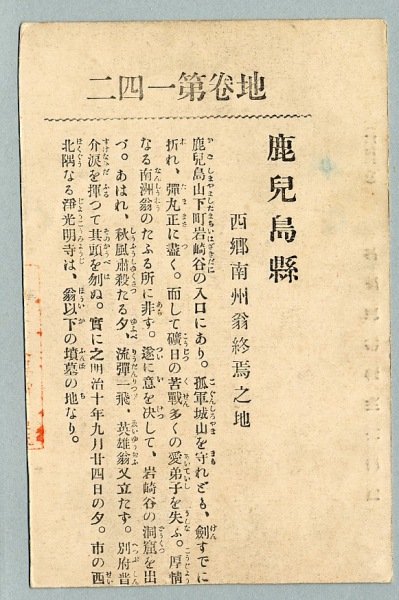 地卷第一四二
鹿兒島縣
西鄕南州翁終焉之地
鹿兒島山下町岩崎谷の入口にあり。孤軍城山を守れども、劍すでに
折れ、彈丸正に盡く。而して礦日の苦戰多くの愛弟子を失ふ。厚情
なる南洲翁のたふる所に非ず。遂に意を決して、岩崎谷の洞窟を出
づ。あはれ、秋風肅殺たる夕、流彈一飛、英雄翁又立たず。別府晋
介淚を揮つて其頭を刎ぬ。實に之明治十年九月廿四日の夕。市の西
北隅なる淨光明寺は、翁以下の墳墓の地なり。